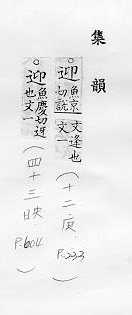 集韻
。迎魚京切說文逢也文一(十二庚 P.233)
。迎魚慶切迓也文一(四十三映 P.604)